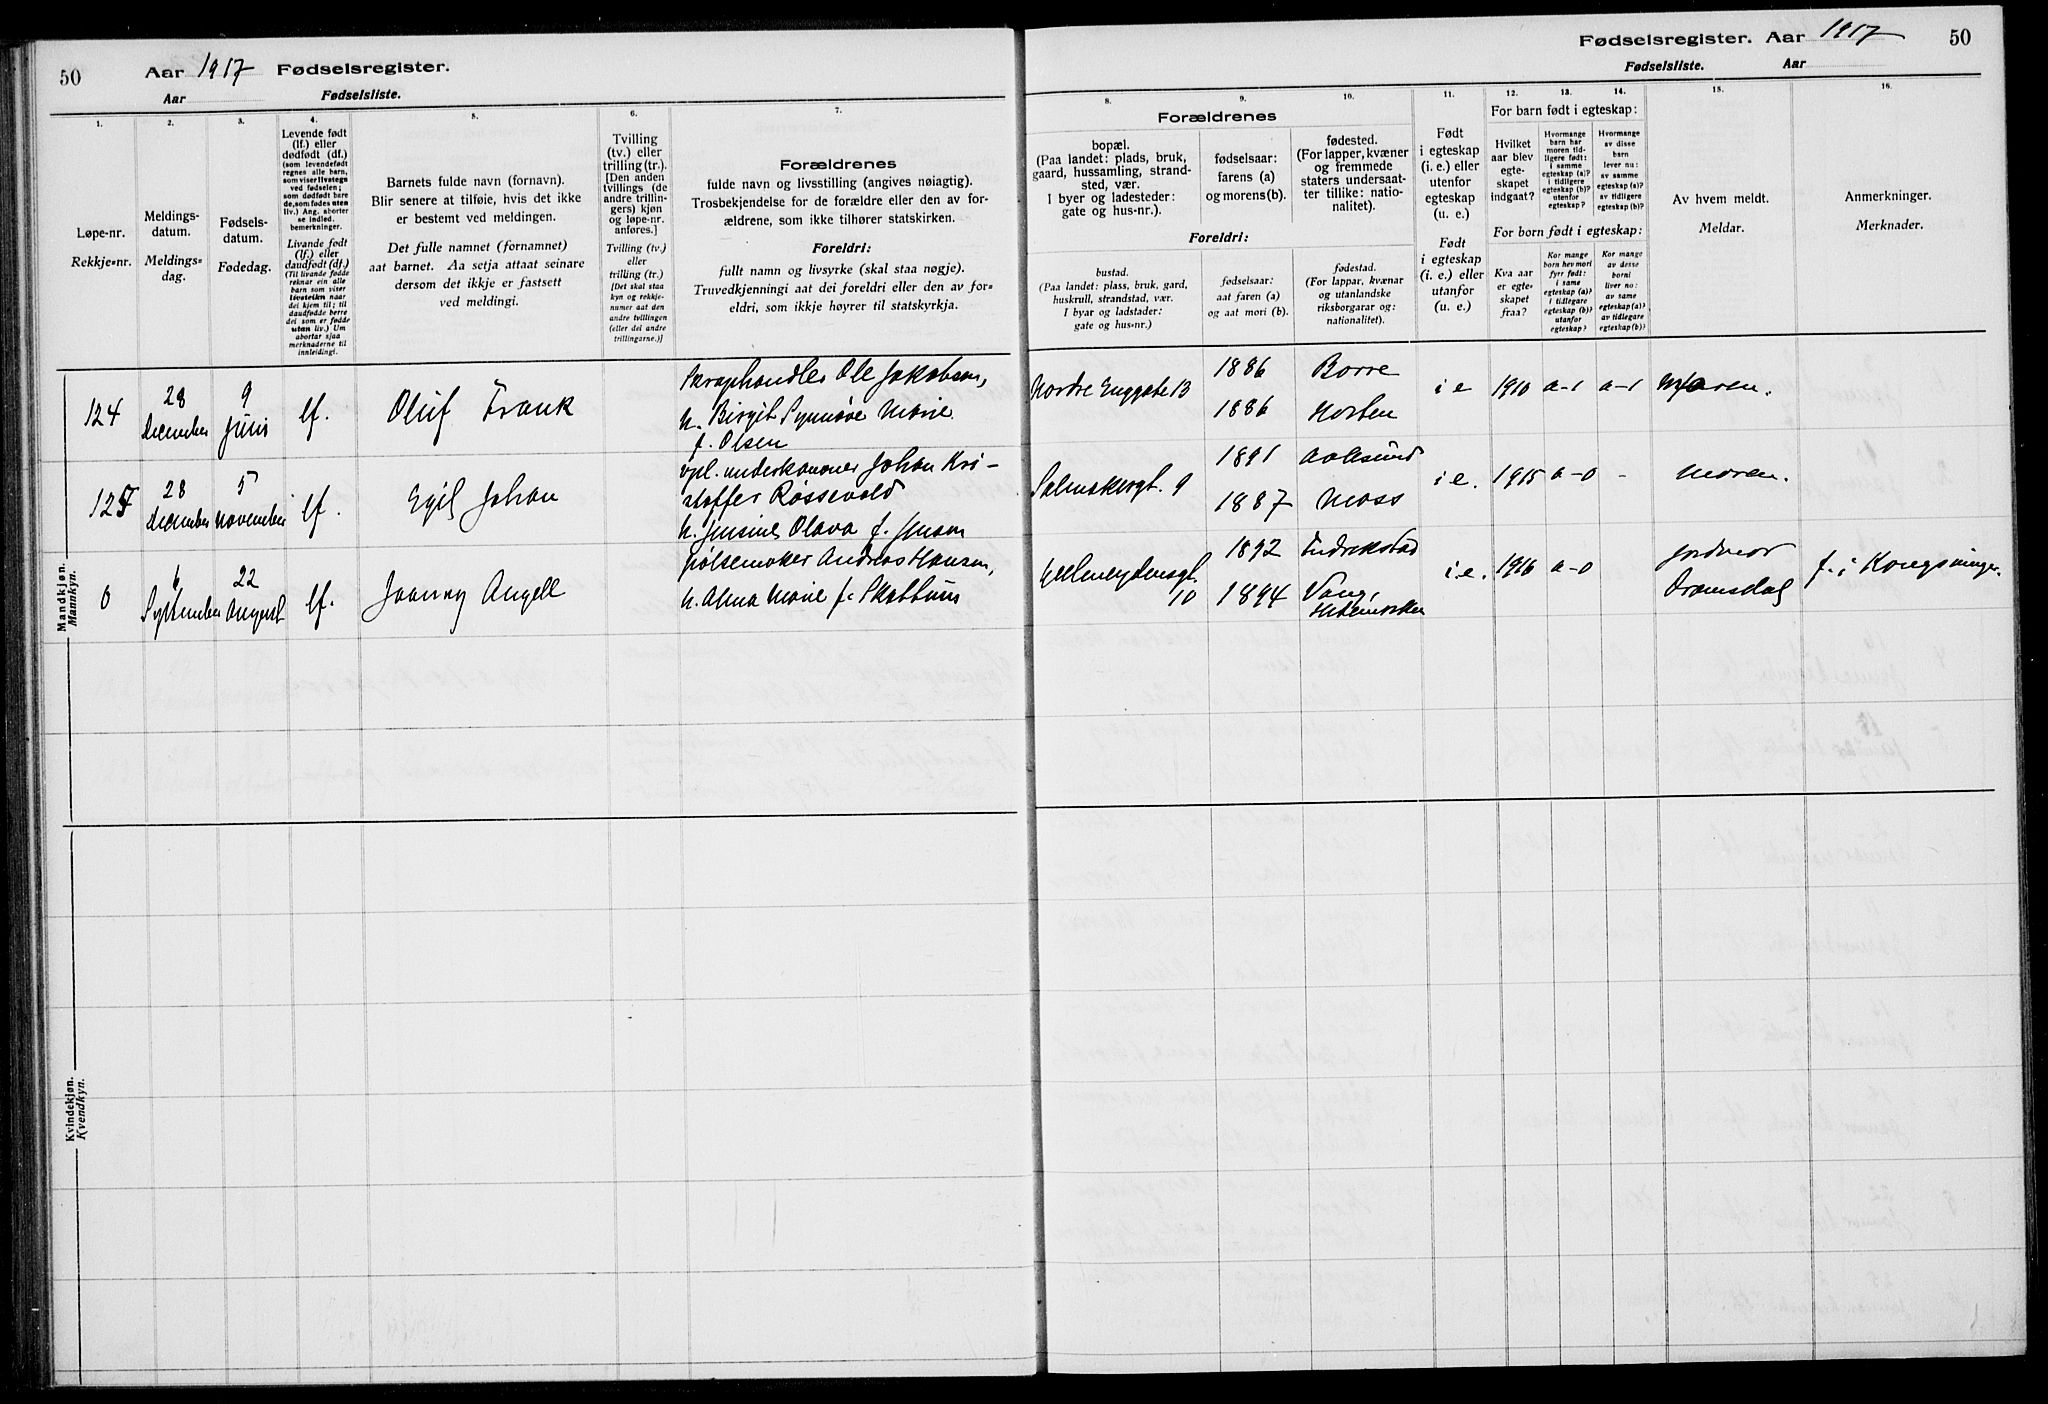 50 Aar 1917 Fødselsregister.
Aar Fødselsliste.
1. 2. 3. 4. 5. 6. 7.
Løpe-nr.
Rekkje=nr.
Meldings-
datum.
Meldings=
dag.
Fødsels-
datum.
Fødedag.
Levende født
(lf.) eller
dødfødt (df.)
(som levendefødt
regnes alle barn,
som viser livstegn
ved fødselen;
som dødfødt bare
de, som fødes uten
liv.) Ang. aborter
se indled.
bemerkninger.
Livande født
(lf.) eller
daudfødt (df.)
(Til livande fødde
reknar ein alle
barn som viser
livsteikn naar
dei kjem til; til
daudfødde berre
dei som er fødde
utan liv.) Um
abortar sjaa
merknaderne til
innleidingi.
Barnets fulde navn (fornavn).
Blir senere at tilføie, hvis det ikke
er bestemt ved meldingen.
Det fulle namnet (fornamnet)
aat barnet. Aa setja attaat seinare
dersom det ikkje er fastsett
ved meldingi.
Tvilling
(tv.) eller
trilling (tr.).
[Den anden
tvillings (de
andre trillin-
gers) kjøn
og løpe-nr.
anføres.]
Tvilling (tv.)
eller
trilling (tr.)
[Det skal staa
kyn og rekkje-
numer aat den
andre tvillingen
(eller dei andre
trillingarne.)]
Forældrenes
fulde navn og livsstilling (angives nøiagtig).
Trosbekjendelse for de forældre eller den av for-
ældrene, som ikke tilhører statskirken.
Foreldri:
fullt namn og livsyrke (skal staa nøgje).
Truvedkjenningi aat dei foreldri eller den av for=
eldri, som ikkje høyrer til statskyrkja.
Mandkjøn.
Mannkyn.
124
28
December
9
Juni
lf.
Oluf Frank
Skraphandler Ole Jakobsen,
h. Birgit Synnøve Marie
f. Olsen
125
28
December
5
November
lf.
Egil Johan
vpl. underkanoner Johan Kri-
stoffer Røssevold
h. Jensine Olava f. Jensen
0
6
September
22
August
lf.
Joanny Angell
pølsemaker Andreas Hansen,
h. Alma Marie f. Skattum
Kvindekjøn.
Kvendkyn.
Fødselsregister. Aar 1917 50
Fødselsliste. Aar
8. 9. 10. 11. 12. 13. 14. 15. 16.
Forældrenes
bopæl.
(Paa landet: plads, bruk,
gaard, hussamling, strand-
sted, vær.
I byer og ladesteder:
gate og hus-nr.).
fødselsaar:
farens (a)
og morens (b).
fødested.
(For lapper, kvæner
og fremmede
staters undersaat-
ter tillike: natio-
nalitet).
Foreldri:
bustad.
(Paa landet: plass, bruk, gard,
huskrull, strandstad, vær.
I byar og ladstader:
gate og hus=nr.)
fødselsaar:
aat faren (a)
og aat mori (b).
fødestad.
(For lappar, kvænar
og utanlandske
riksborgarar og:
nationalitet).
Født
i egteskap
(i. e.) eller
utenfor
egteskap
(u. e.)
Født
i egteskap
(i. e.) eller
utanfor
(u. e.)
For barn født i egteskap:
Hvilket
aar blev
egte-
skapet
indgaat?
Hvormange
barn har
moren tid-
ligere født:
i samme
egteskap (a)?
i tidligere
egteskap (b)?
utenfor
egteskap?
Hvormange
av disse
barn
lever nu:
av samme
egteskap (a)?
av tidligere
egteskap (b)?
For born født i egteskap:
Kva aar
er egte-
skapet
fraa?
Kor mange
born hev mori
fyrr født:
i same
egteskap (a)?
i tidlegare
egteskap (b)?
utanfor
egteskap?
Kor mange
av desse
borni
liver no:
av same
egteskap (a)?
av tidlegare
egteskap (b)?
Av hvem meldt.
Meldar.
Anmerkninger.
Merknader.
Nordre Enggate 13
1886
1886
Borre
Horten
i e
1910
a-1
a-1
Moren.
9
1891
1887
Aalesund
Moss
i e.
1915
a-0
-
Moren.
10
1892
1894
Fredrikstad
Vang,
Hedemarken
i. e.
1916
a-0
jordmor
Dramsdal
f. i Kongsvinger.